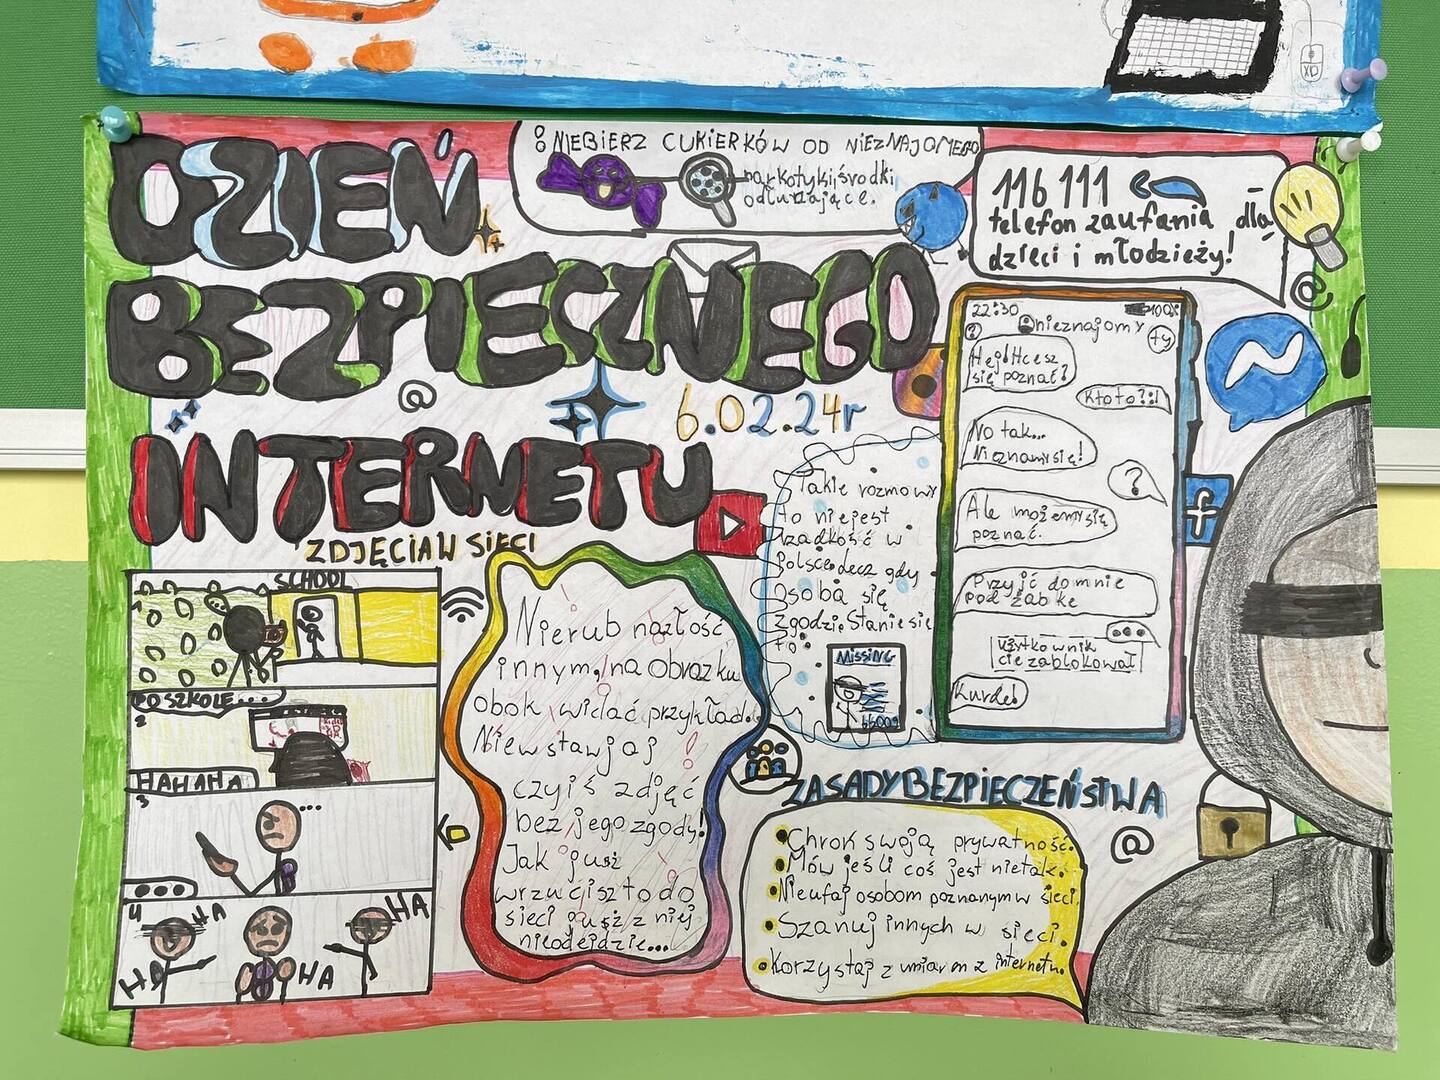 XD
DZIEŃ
BEZPIECZNEGO
INTERNETU
6.02.24r
NIEBIERZ CUKIERKÓW OD NIEZNAJOMEGO
narkotyki, środki
odurzające.
116 111
telefon zaufania dla
dzieci i młodzieży!
@
@
22:30
nieznajomy
ty
Hej! Hcesz
się poznać?
Kto to?!
No tak...
Nieznamysię!
?
Ale możemysię
poznać.
Przyjć domnie
pod żabke
użytkownik
cie zablokował
Kurde!
f
Takie rozmowy
to niejest
żadkość w
Polsce, lecz gdy
osoba się
zgodzi. Staniesię
to:
MISSING
ZDJĘCIA W SIECI
SCHOOL
PO SZKOLE...
2
HAHAHA
3
...
4
HA
HA
HA
HA
Nierub nazłość
innym, na obrazku
obok widać przykład.
Niewstawjaj
czyiś zdjęć
bez jego zgody!
Jak jusz
wrzucisz to do
sieci jusz z niej
nieodejdzie...
ZASADY BEZPIECZEŃSTWA
@
Chroń swoją prywatność.
Mów jeśli coś jest nietak.
Nieufaj osobom poznanym w sieci.
Szanuj innych w sieci.
Korzystaj z umiarem z internetu.